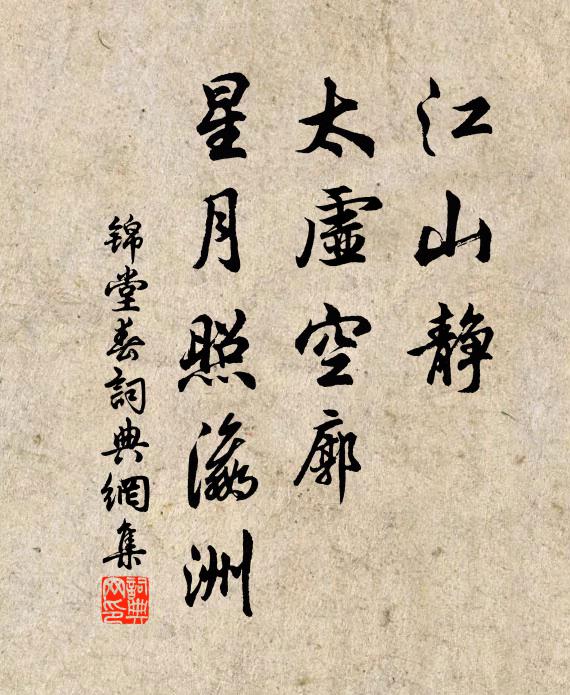 江山静
太虚空廓
星月照瀛洲
锦堂春詞典網集
詞典
网印